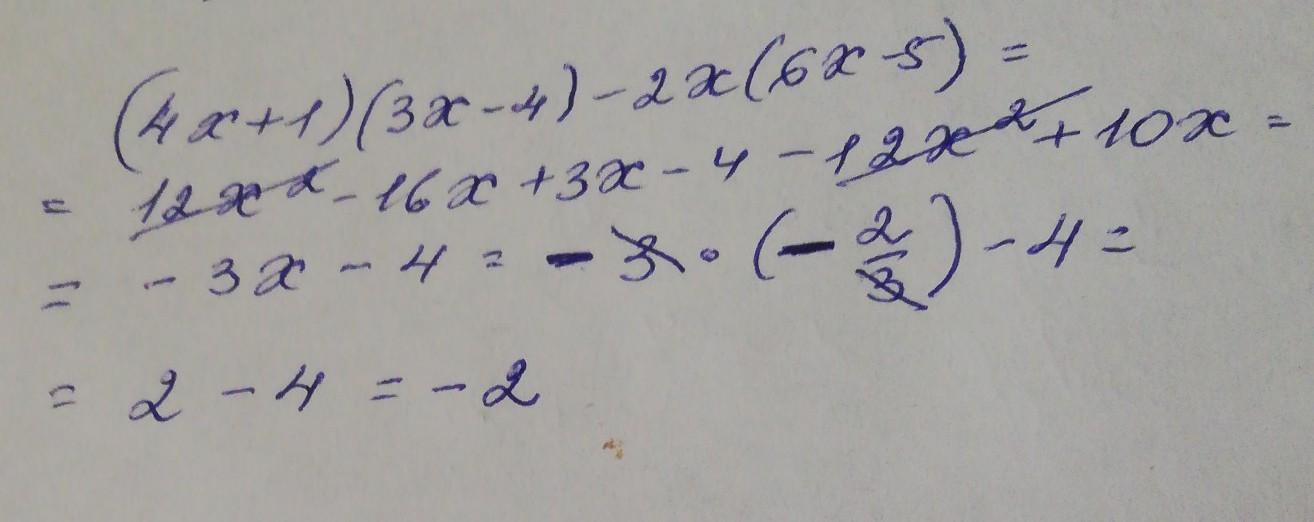 (4x+1)(3x-4)-2x(6x-5)=
= 12x²-16x+3x-4-12x²+10x=
= -3x-4=-3·(-2/3)-4=
= 2-4=-2